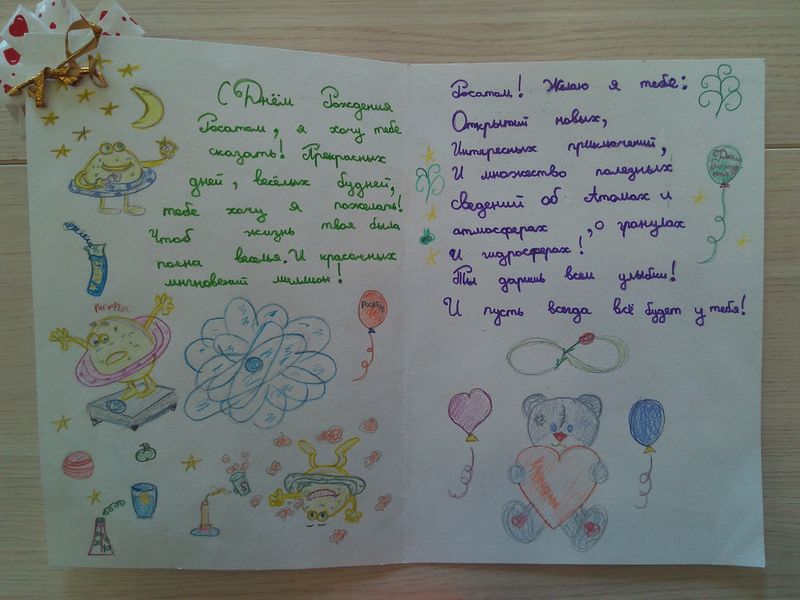 С Днём Рождения
Росатом, я хочу тебе
сказать! Прекрасных
дней, весёлых будней,
тебе хочу я пожелать!
Чтоб жизнь твоя была
полна веселья. И красочных
мгновений миллион!
РОСАТОМ
S
Росатом! Желаю я тебе:
Открытий новых,
Интересных приключений,
И множество полезных
сведений об Атомах и
атмосферах, о гранулах
И гидросферах!
Ты даришь всем улыбки!
И пусть всегда всё будет у тебя!
С Днём